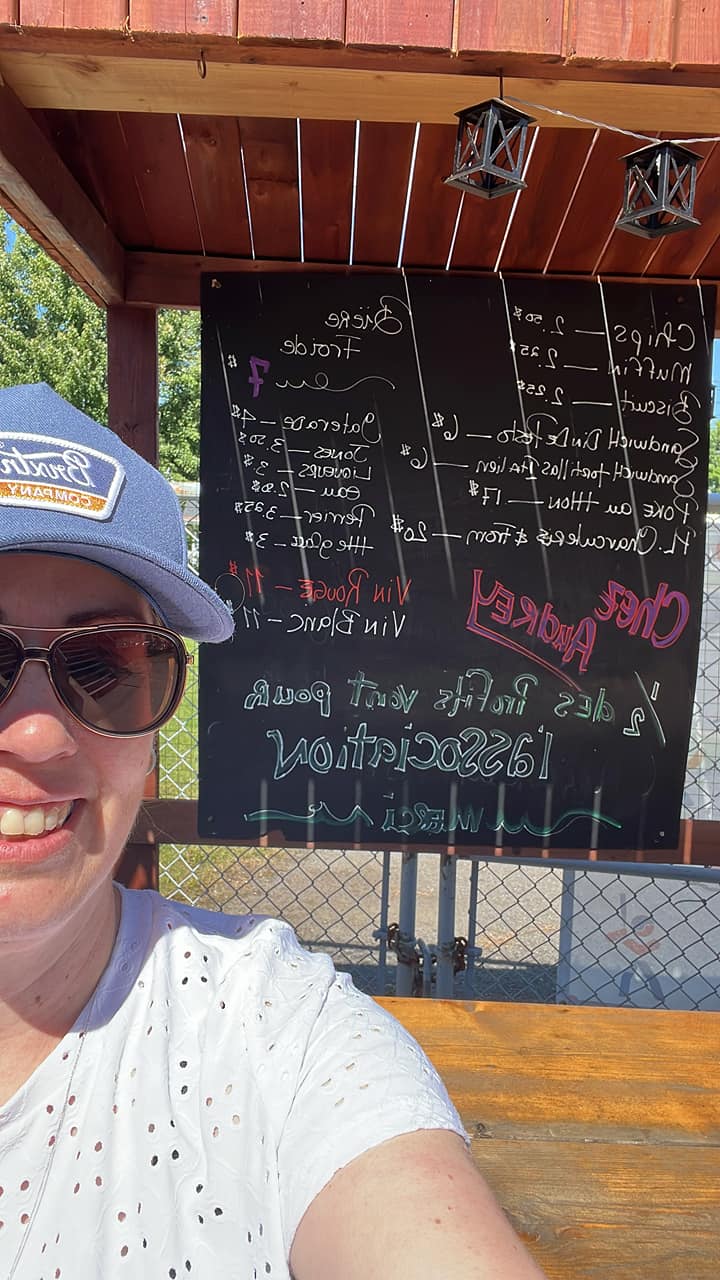 Brixton
COMPANY
Chips — 2.50$
Muffin — 2.25$
Biscuit — 2.25$
Sandwich Dinde Pesto — 6$
Sandwich tortillas Italien — 6$
Poke au thon — 17$
P. Charcuteries & From — 20$
Chez
Audrey
Bière
Froide
7$
Gatorade — 4$
Jones — 3.50$
Liqueurs — 3$
eau — 2.50$
Perrier — 3.25$
thé glacé — 3$
Vin Rouge — 11$
Vin Blanc — 11$
1/2 des profits vont pour
l'association
MERCI